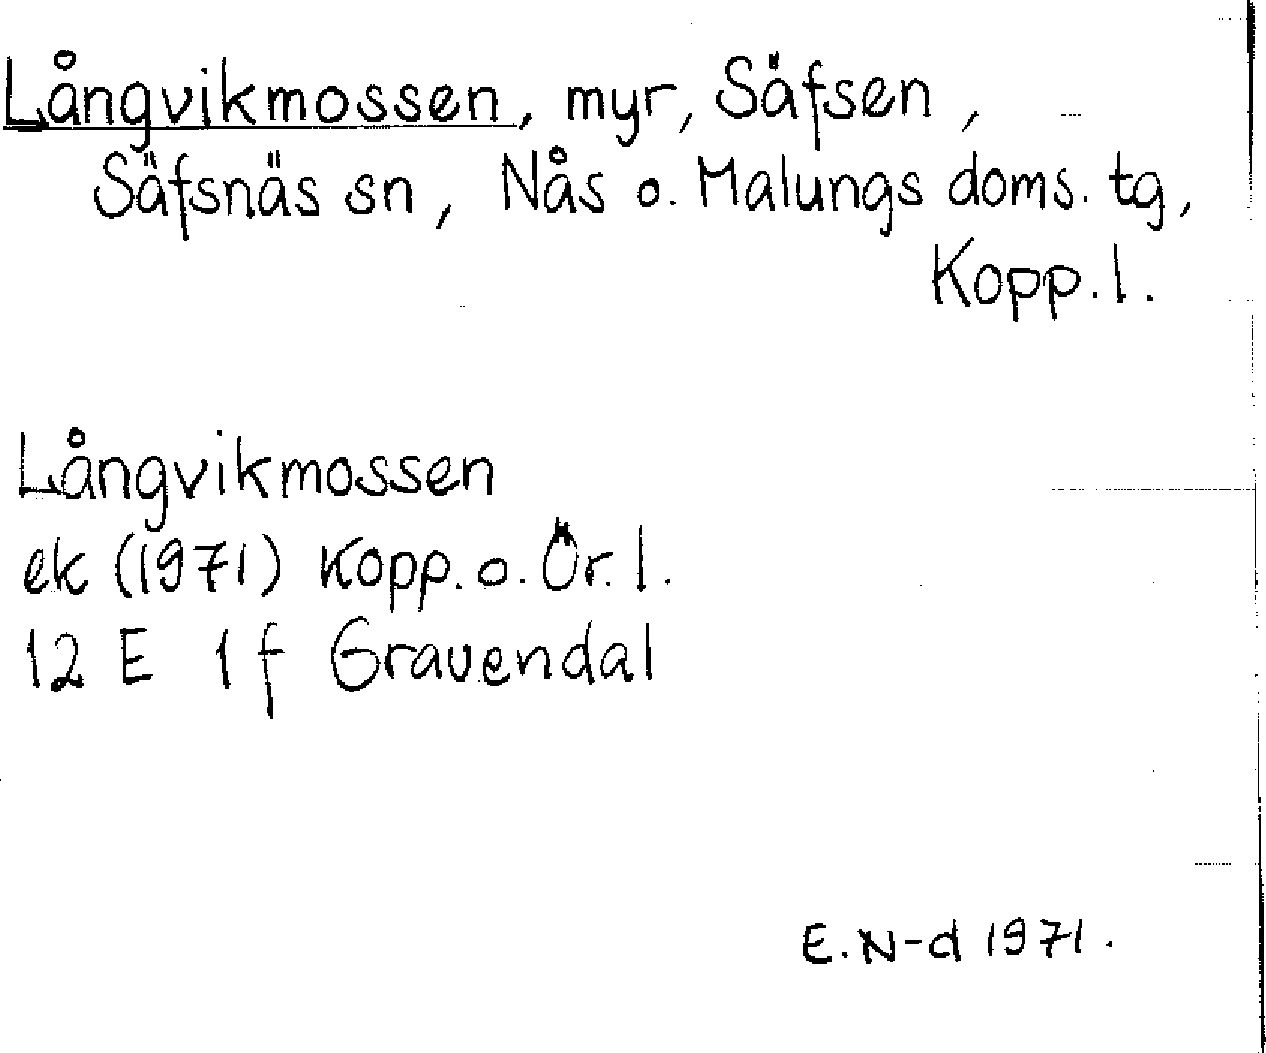 Långvikmossen, myr, Säfsen,
Säfsnäs sn, Nås o. Malungs doms. tg,
Kopp. l.
Långvikmossen
ek (1971) Kopp. o. Ör. l.
12 E 1 f Gravendal
E. N-d 1971.